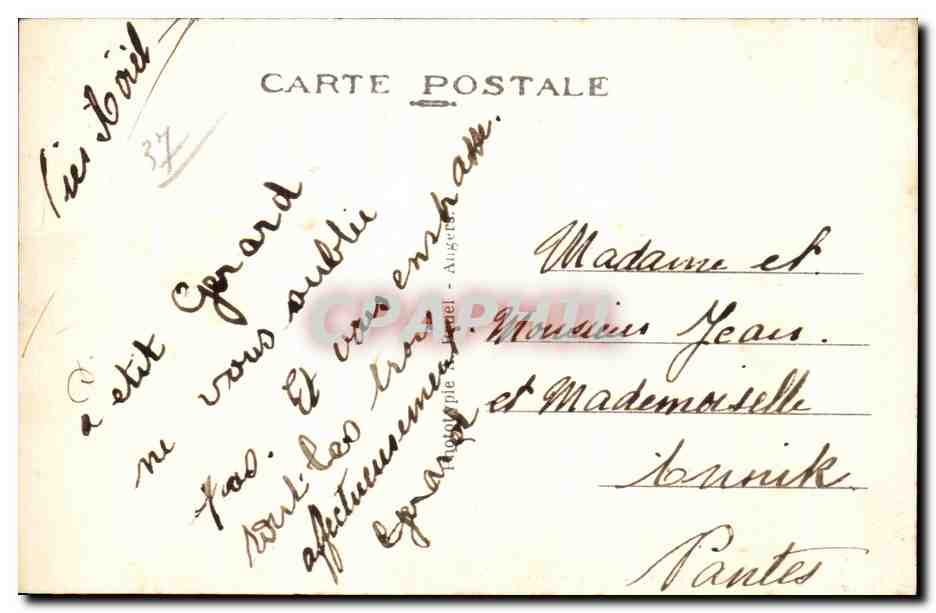 CARTE POSTALE
37
Petit Gerard
ne vous oublie
pas. Et vous embrasse
tout les trois
affectueusement
Gerard
Phototypie - Angers.
CPAPHIL
Madame et
Monsieur Jean.
et Mademoiselle
Annik
Nantes